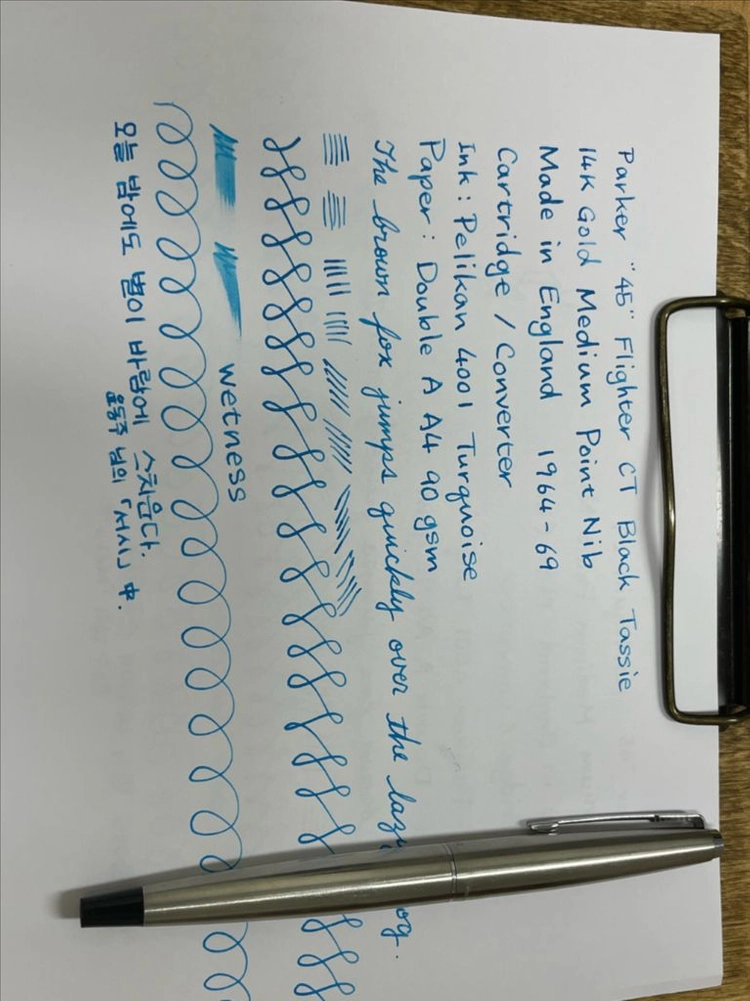 Parker "45" Flighter CT Black Tassie
14K Gold Medium Point Nib
Made in England 1964-69
Cartridge / Converter
Ink : Pelikan 4001 Turquoise
Paper : Double A A4 90 gsm
The brown fox jumps quickly over the
wetness
오늘 밤에도 별이 바람에 스치운다.
윤동주 님의 「서시」 中.